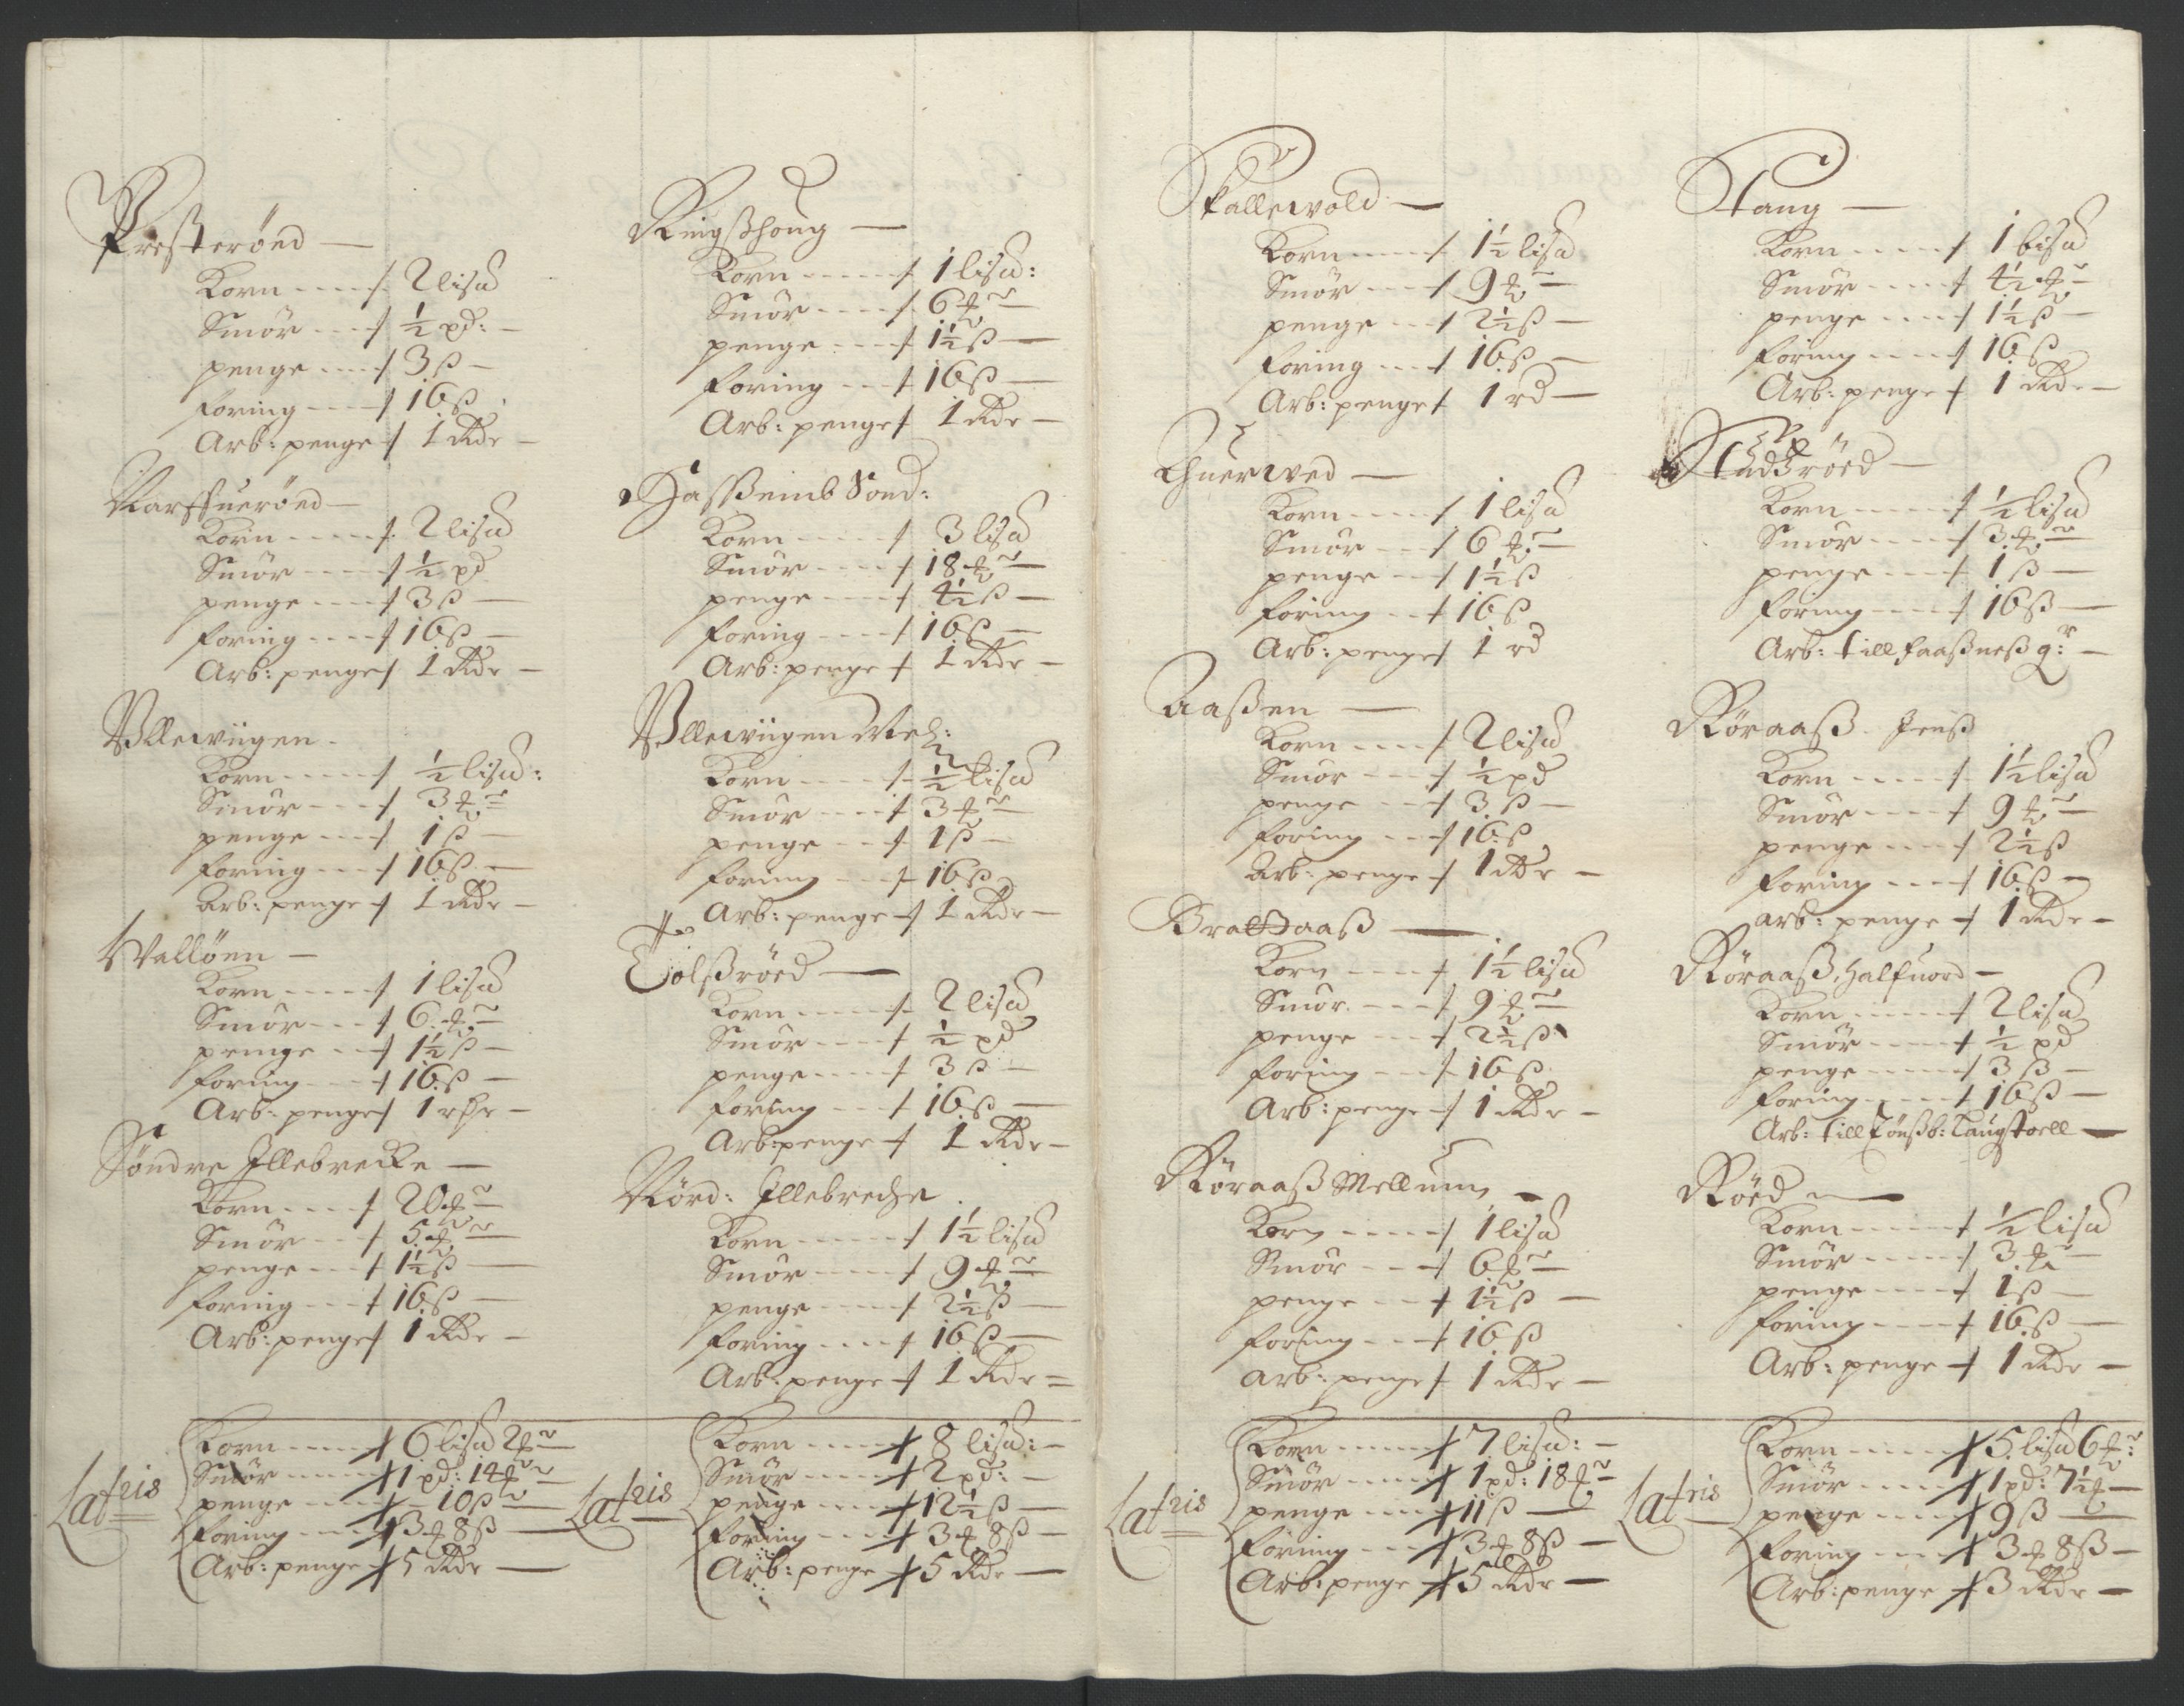 Presteröed —
Korn ---- / 2 lisd
Smör ---- / ½ pd: —
penge ---- / 3 ß —
foring ---- / 16 ß
Arb: penge / 1 Rdr —
Narfsueröed —
Korn ---- / 2 lisd
Smör ---- / ½ pd
penge ---- / 3 ß —
foring ---- / 16 ß —
Arb: penge / 1 Rdr —
Vllewiigen —
Korn ---- / ½ lisd:
Smör ---- / 3 ꝉ
penge ---- / 1 ß —
foring ---- / 16 ß —
Arb: penge / 1 Rdr —
Wallöen —
Korn ---- / 1 lisd
Smör ---- / 6 ꝉ
penge ---- / 1½ ß —
foring ---- / 16 ß —
Arb: penge / 1 rdr —
Söndre Jllebrecke —
Korn ---- / 20 ꝉ —
Smör ---- / 5 ꝉ —
penge ---- / 1½ ß —
foring ---- / 16 ß —
Arb: penge / 1 Rdr —
Latris
Korn ---- / 6 lisd 2 ꝉ
Smör ---- / 1 pd: 14 ꝉ
penge ---- / - 10 ß —
foring ---- / 3 ꝉ 8 ß —
Arb: penge / 5 Rdr —
Ringßhoug —
Korn ---- / 1 lisd:
Smör ---- / 6 ꝉ —
penge ---- / 1½ ß —
foring ---- / 16 ß —
Arb: penge / 1 Rdr —
Hassemb Sond:
Korn ---- / 3 lisd
Smör ---- / 18 ꝉ —
penge ---- / 4½ ß —
foring ---- / 16 ß —
Arb: penge / 1 Rdr —
Vllewiigen Mel:
Korn ---- / ½ lisd
Smör ---- / 3 ꝉ —
penge ---- / 1 ß —
foring ---- / 16 ß
Arb: penge / 1 Rdr —
Tolßröed —
Korn ---- / 2 lisd
Smör ---- / ½ pd
penge ---- / 3 ß —
foring ---- / 16 ß —
Arb: penge / 1 Rdr —
Nörd: Jllebreche
Korn ---- / 1½ lisd
Smör ---- / 9 ꝉ —
penge ---- / 2½ ß —
foring ---- / 16 ß —
Arb: penge / 1 Rdr —
Latris
Korn ---- / 8 lisd: —
Smör ---- / 2 pd: —
penge ---- / 12½ ß —
foring ---- / 3 ꝉ 8 ß —
Arb: penge / 5 Rdr —
Skallewold —
Korn ---- / 1½ lisd
Smör ---- / 9 ꝉ —
penge ---- / 2½ ß —
foring ---- / 16 ß —
Arb: penge / 1 rd —
Querwed —
Korn ---- / 1 lisd
Smör ---- / 6 ꝉ —
penge ---- / 1½ ß
foring ---- / 16 ß
Arb: penge / 1 rd
Aaßen —
Korn ---- / 2 lisd
Smör ---- / ½ pd
penge ---- / 3 ß —
foring ---- / 16 ß
Arb: penge / 1 Rdr —
Brattaaß —
Korn ---- / 1½ lisd
Smör ---- / 9 ꝉ —
penge ---- / 2½ ß
foring ---- / 16 ß
Arb: penge / 1 Rdr —
Röraaß Mellum —
Korn ---- / 1 lisd
Smör ---- / 6 ꝉ —
penge ---- / 1½ ß —
foring ---- / 16 ß
Arb: penge / 1 Rdr —
Latris
Korn ---- / 7 lisd: —
Smör ---- / 1 pd: 18 ꝉ —
penge ---- / 11 ß —
foring ---- / 3 ꝉ 8 ß —
Arb: penge / 5 Rdr —
Stang —
Korn ---- / 1 bisd
Smör ---- / 4½ ꝉ —
penge ---- / 1½ ß —
foring ---- / 16 ß
Arb: penge / 1 Rdr —
Korn ---- / ½ lisd
Smör ---- / 3 ꝉ —
penge ---- / 1 ß —
foring ---- / 16 ß —
Arb: till faaßneß g: —
Röraaß Jenß
Korn ---- / 1½ lisd
Smör ---- / 9 ꝉ —
penge ---- / 2½ ß
foring ---- / 16 ß —
arb: penge / 1 Rdr —
Röraaß, Halfuord —
Korn ---- / 2 lisd
Smör ---- / ½ pd
penge ---- / 3 ß —
foring ---- / 16 ß —
Arb: till Tönßb: Laugstoell —
Röed —
Korn ---- / ½ lisd
Smör ---- / 3 ꝉ —
penge ---- / 1 ß —
foring ---- / 16 ß —
Arb: penge / 1 Rdr —
Latris
Korn ---- / 5 lisd 6 ꝉ:
Smör ---- / 1 pd: 7½ ꝉ —
penge ---- / 9 ß —
foring ---- / 3 ꝉ 8 ß —
Arb: penge / 3 Rdr —